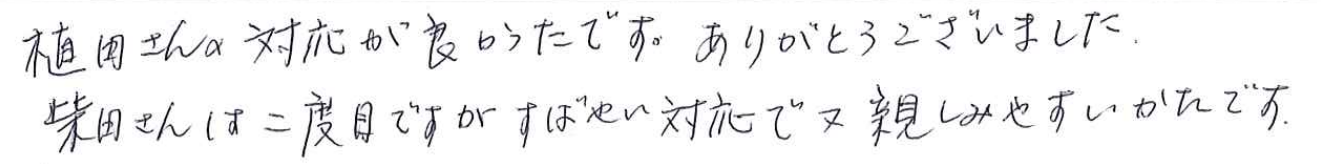 植田さんの対応が良かったです。ありがとうございました.
柴田さんは二度目ですがすばやい対応で又親しみやすいかたです.